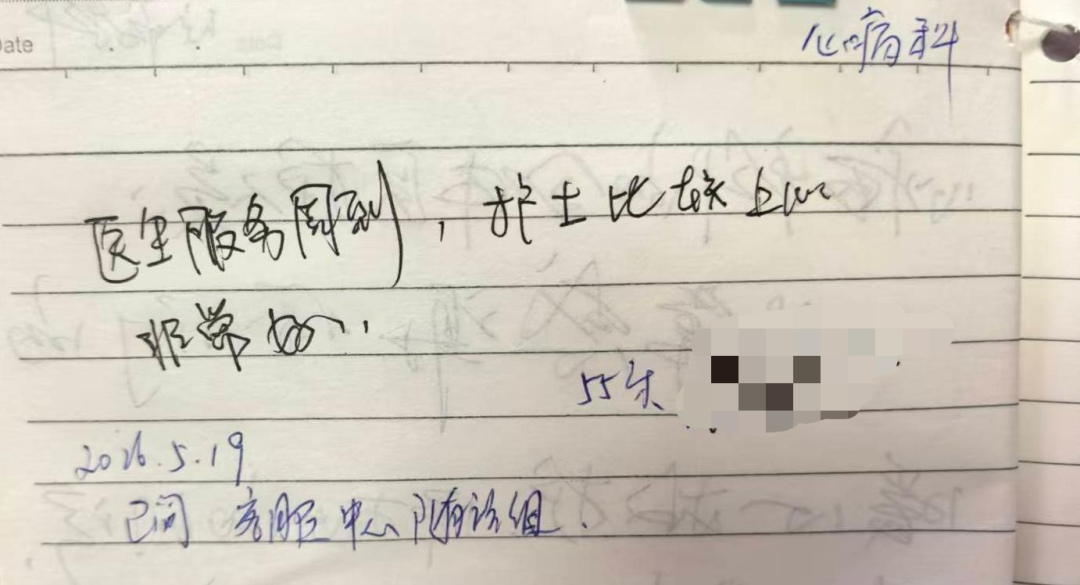 Date
心病科
医生服务周到，护士比较上心
非常好.
55床
2026.5.19
已阅 客服中心随访组.